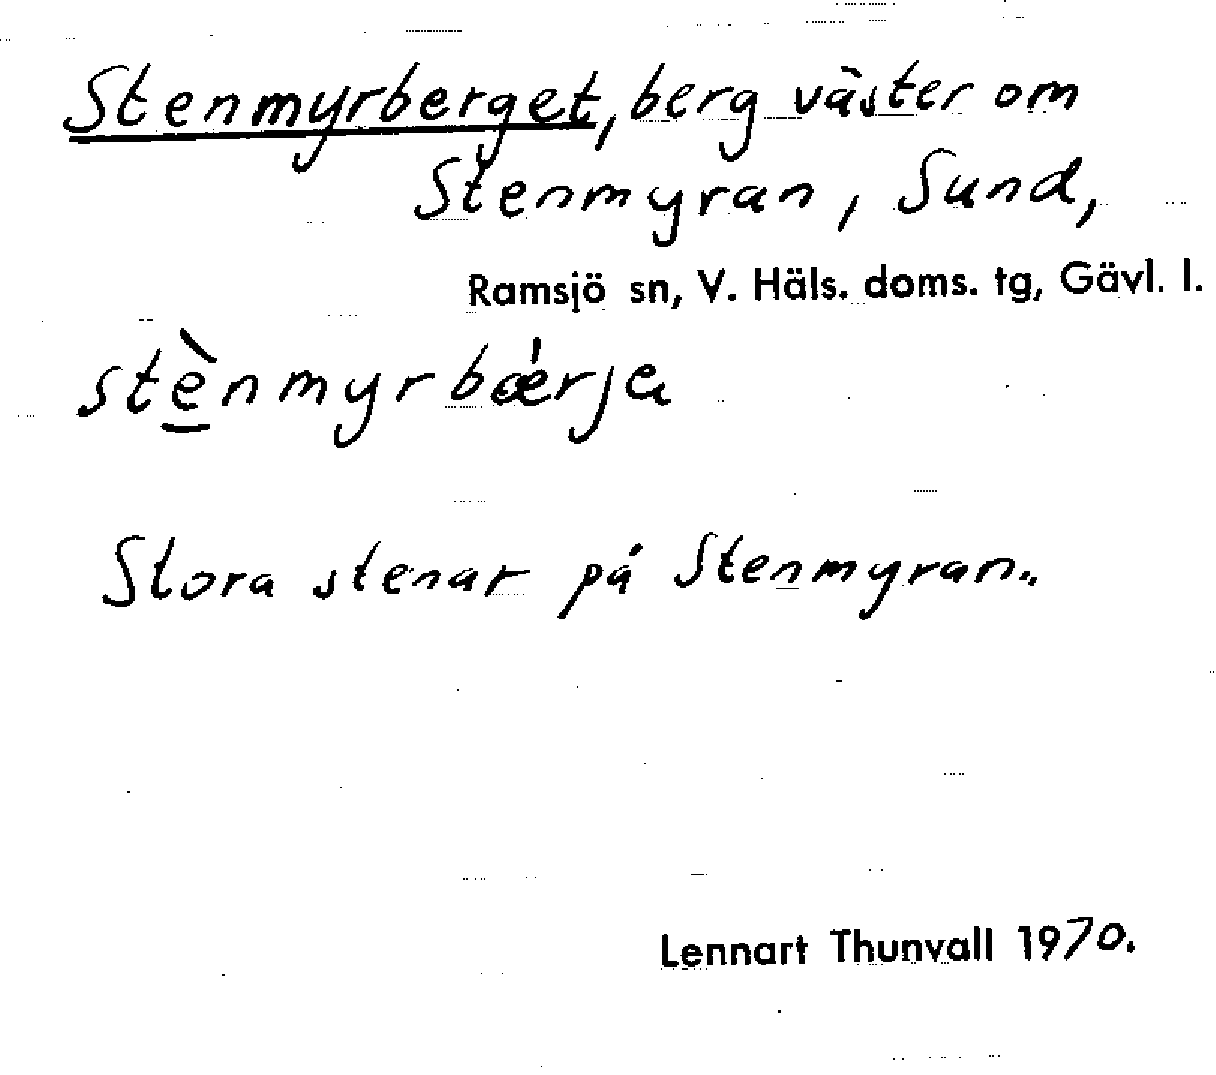 Stenmyrberget, berg väster om
Stenmyran, Sund,
Ramsjö sn, V. Häls. doms. tg, Gävl. l.
stè̲nmyrbǽrja
Stora stenar på Stenmyran.
Lennart Thunvall 1970.